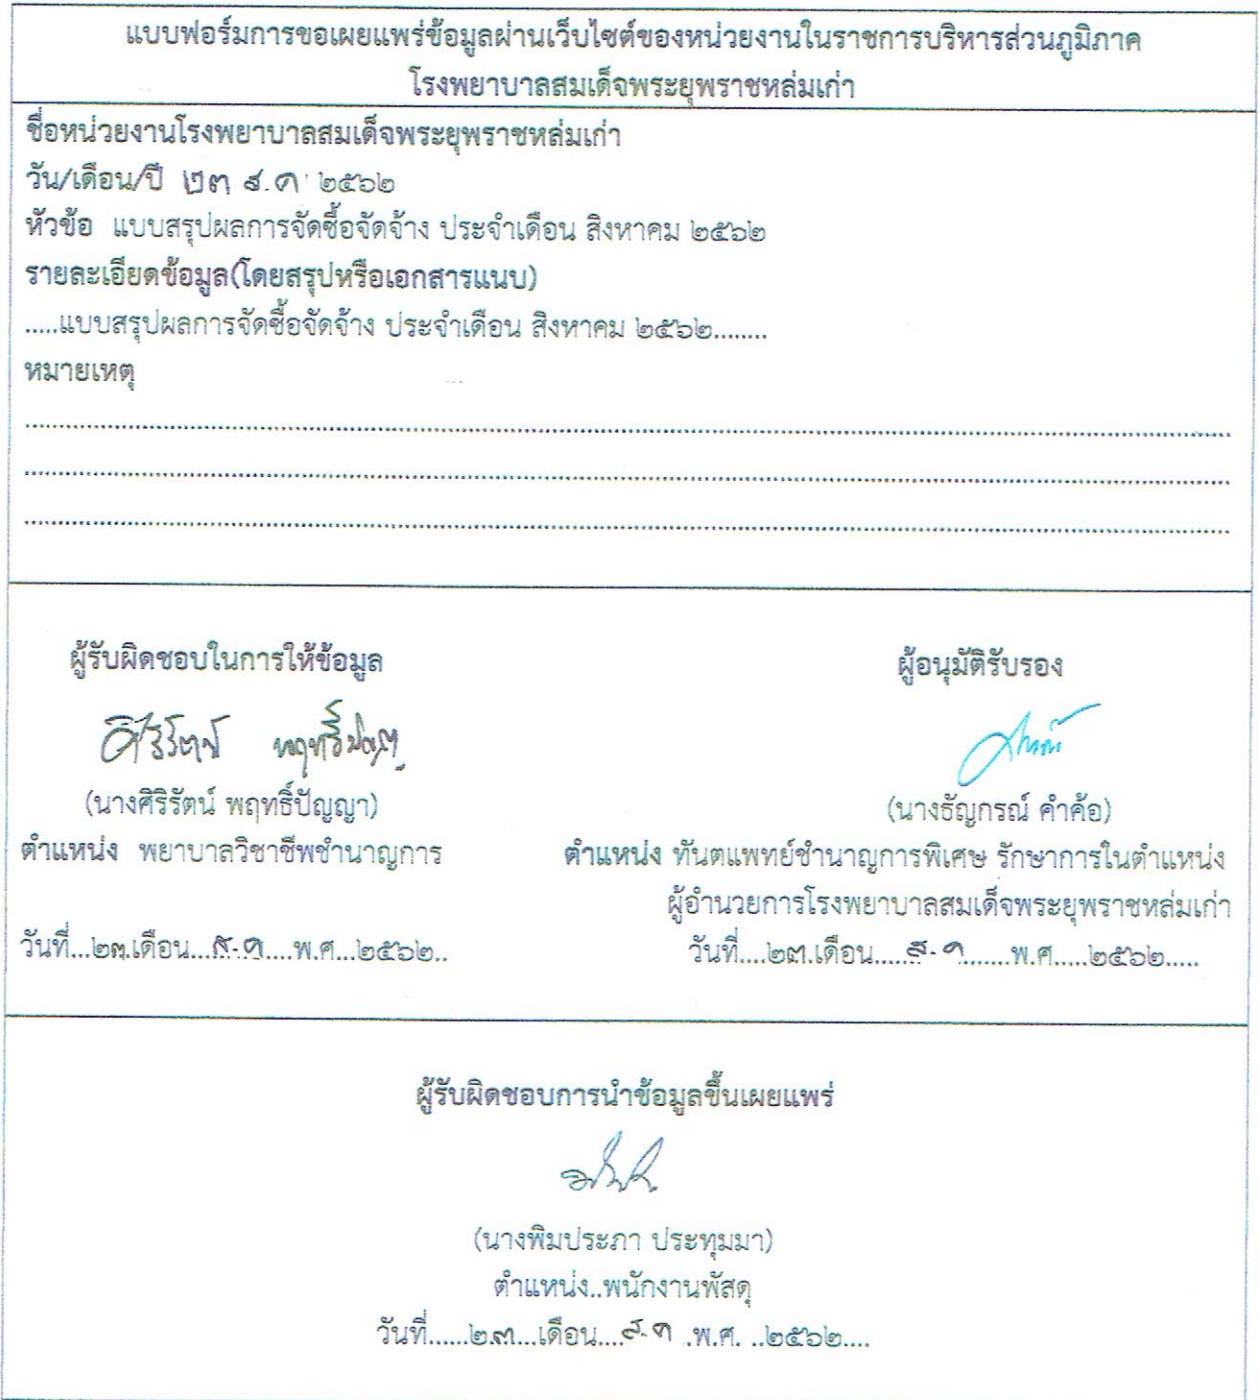 แบบฟอร์มการขอเผยแพร่ข้อมูลผ่านเว็บไซต์ของหน่วยงานในราชการบริหารส่วนภูมิภาค
โรงพยาบาลสมเด็จพระยุพราชหล่มเก่า
ชื่อหน่วยงานโรงพยาบาลสมเด็จพระยุพราชหล่มเก่า
วัน/เดือน/ปี ๒๓ ส.ค. ๒๕๖๒
หัวข้อ แบบสรุปผลการจัดซื้อจัดจ้าง ประจำเดือน สิงหาคม ๒๕๖๒
รายละเอียดข้อมูล(โดยสรุปหรือเอกสารแนบ)
.....แบบสรุปผลการจัดซื้อจัดจ้าง ประจำเดือน สิงหาคม ๒๕๖๒........
หมายเหตุ
ผู้รับผิดชอบในการให้ข้อมูล
ศิริรัตน์ พฤทธิ์ปัญญา
(นางศิริรัตน์ พฤทธิ์ปัญญา)
ตำแหน่ง พยาบาลวิชาชีพชำนาญการ
วันที่...๒๓.เดือน...ส.ค....พ.ศ...๒๕๖๒..
ผู้อนุมัติรับรอง
(นางธัญกรณ์ คำค้อ)
ตำแหน่ง ทันตแพทย์ชำนาญการพิเศษ รักษาการในตำแหน่ง
ผู้อำนวยการโรงพยาบาลสมเด็จพระยุพราชหล่มเก่า
วันที่....๒๓.เดือน......ส.ค.......พ.ศ.....๒๕๖๒.....
ผู้รับผิดชอบการนำข้อมูลขึ้นเผยแพร่
(นางพิมประภา ประทุมมา)
ตำแหน่ง..พนักงานพัสดุ
วันที่......๒๓...เดือน....ส.ค .พ.ศ. ..๒๕๖๒....